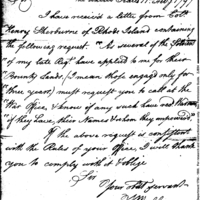 I have received a letter from Coll.
Henry Sherburne of Rhode Island containing
the following request. "As several of the Soldiers
of my late Regt. have applied to me for their
Bounty Lands, (I mean those engaged only for
three years) must request you to call at the
War Office, & know of any such have
if they have, their Names & whom they empowered."
If the above request is consistent
with the Rules of your Office, I will thank
you to comply with it & oblige
Sir
Your Obt Servant